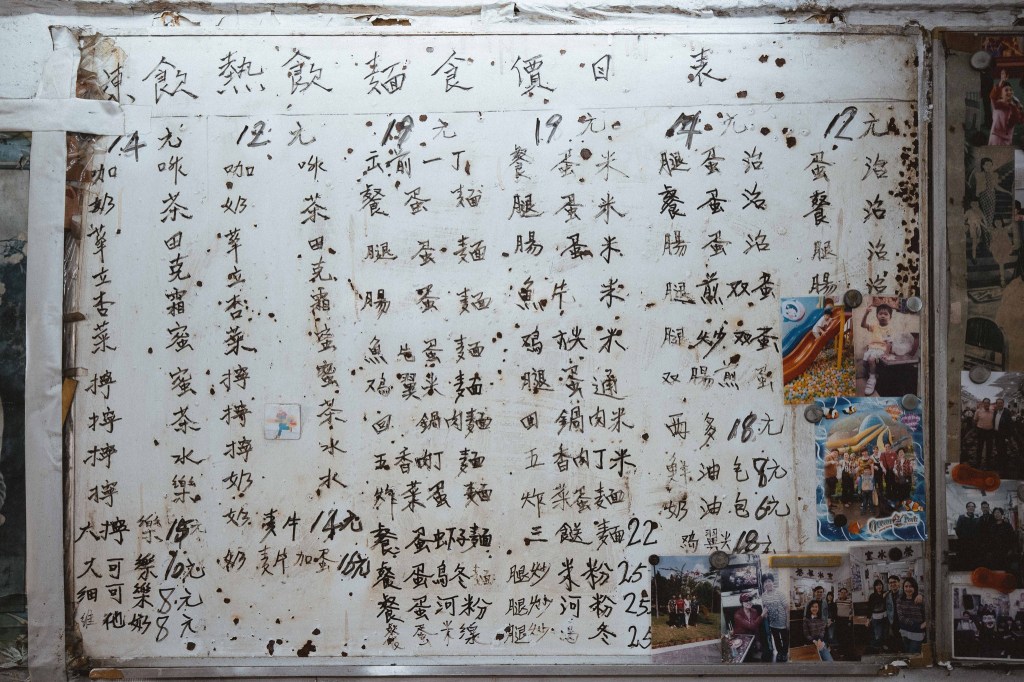 凍飲 熱飲 麵食 價目表
14元
咖啡
奶茶
華田
立克
杏霜
菜蜜
檸蜜
檸茶
檸水
檸樂
大檸樂15元
大可樂10元
細可樂8元
維他奶8元
12元
咖啡
奶茶
華田
立克
杏霜
菜蜜
檸蜜
檸茶
檸水
奶水
奶麦牛14元
奶麦牛加蛋16元
19元
五前一丁
餐蛋麵
腿蛋麵
腸蛋麵
魚片蛋麵
鸡翼米麵
回鍋肉麵
五香肉丁麵
炸菜蛋麵
餐蛋虾子麵
餐蛋烏冬麵
餐蛋河粉
餐蛋米線
19元
餐蛋米
腿蛋米
腸蛋米
魚牛米
鸡扒米
腿蛋通
回鍋肉米
五香肉丁米
炸菜蛋麵
三餸麵22
腿炒米粉25
腿炒河粉25
腿炒冬25
14元
腿蛋治
餐蛋治
腸蛋治
腿煎双蛋
腿炒双蛋
双腸煎蛋
西多18元
鮮油包8元
奶油包6元
鸡翼米18元
12元
蛋治
餐治
腿治
腸治